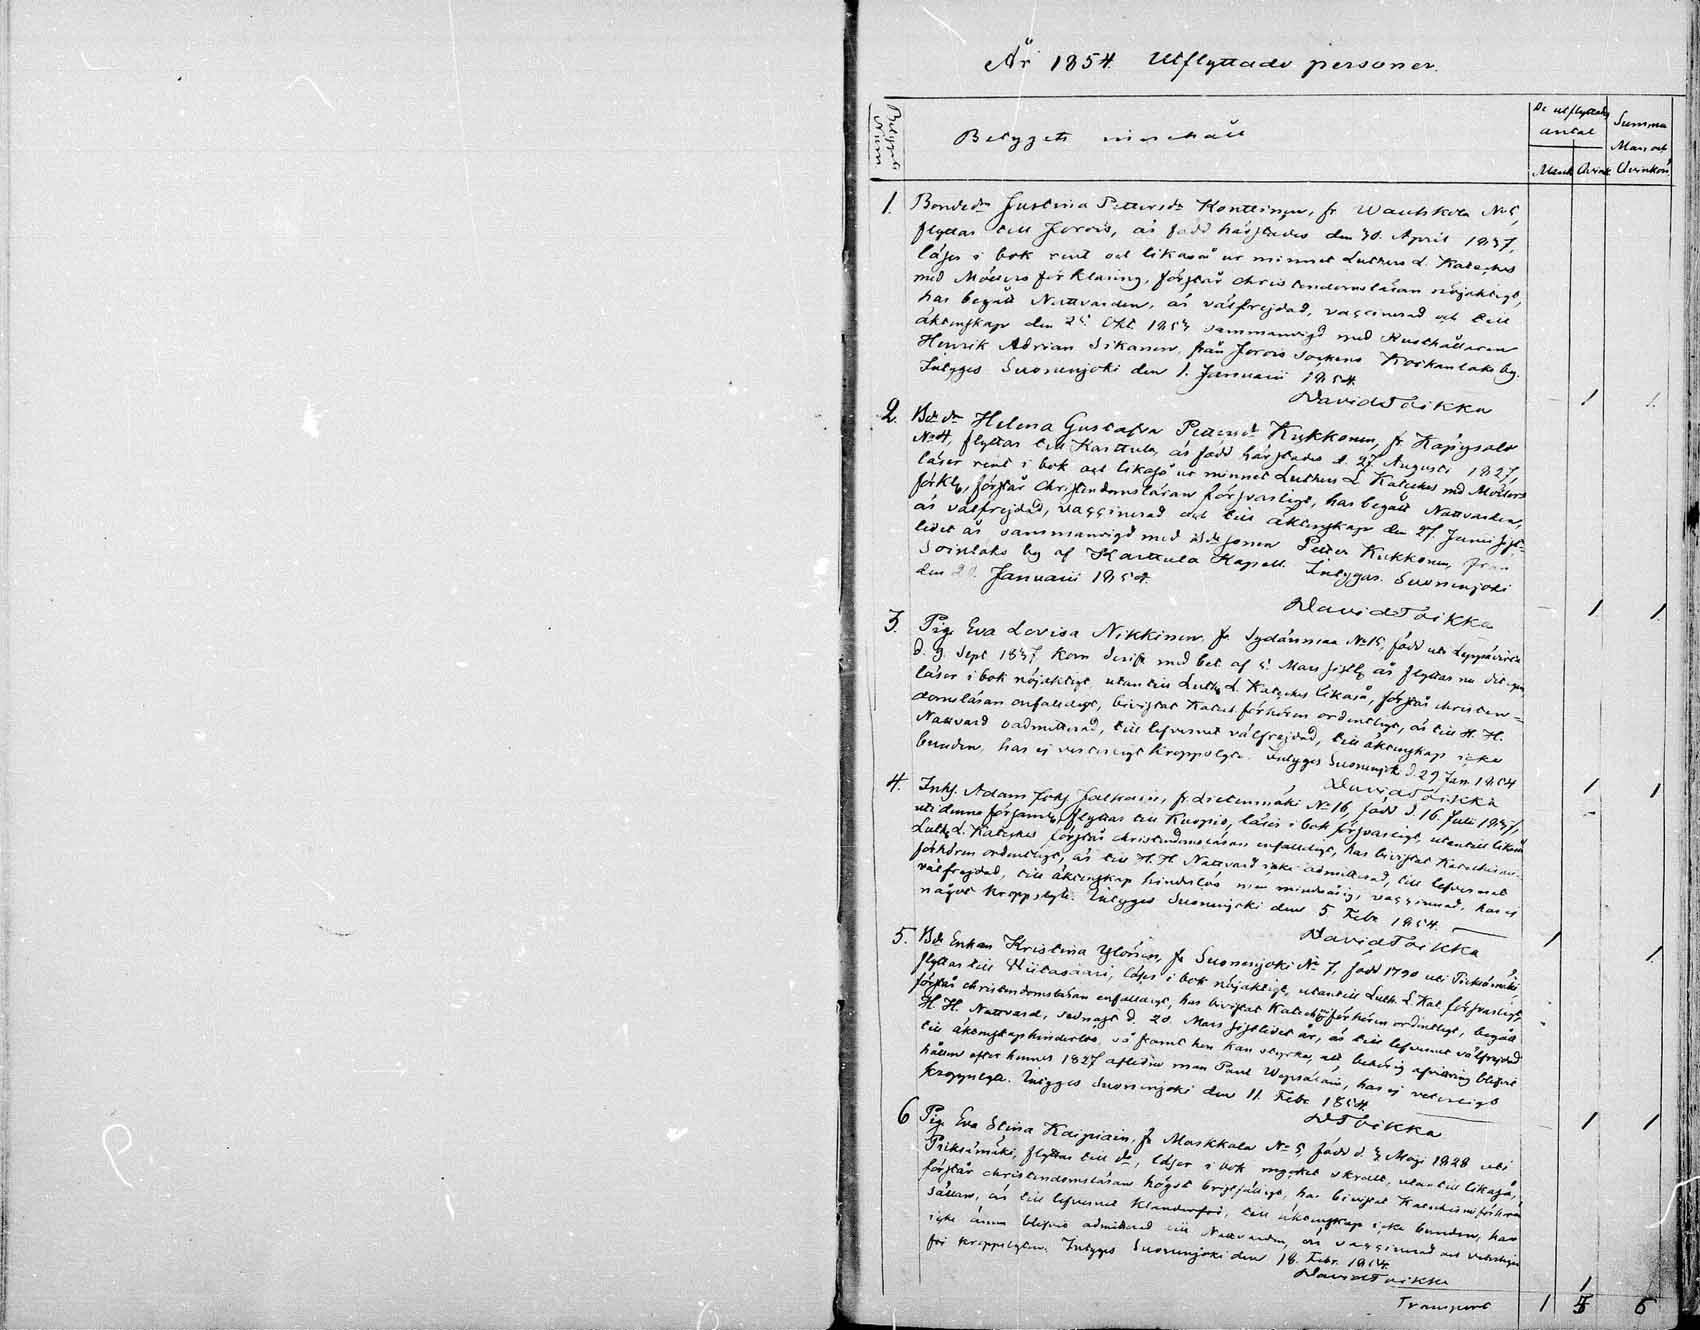 År 1854. Utflyttade personer.
Betygets Num.
Betygets innehåll
De utflyttades antal
Mank Qvink
Summa Man och Qvinkön
1. Bondedr Justina Pettersdr Konttinen, fr
flyttar till Jorois, är född härstädes den 30. April 1837,
läser i bok rent och likaså ur minnet Luthers L. Kateches
med Möllers förklaring, förstår christendomsläran nöjaktigt,
har begått Nattvarden, är välfrejdad, vaccinerad och till
äktenskap den 25 Okt. 1853 sammanvigd med Rusthållaren
Henrik Adrian Sikanen, från Jorois Sockens by.
Intygas Suonenjoki den 1. Januarii 1854.
David Toikka
1 1
2. Bdedr Helena Gustafva Pettersdr Kukkonen, fr
No 4, flyttar till Karttula, är född härstädes d. 27 Augusti 1827,
läser rent i bok och likaså ur minnet Luthers L Kateches med Möllers
förkl, förstår Christendomsläran försvarligt, har begått Nattvarden,
är välfrejdad, vaccinerad och till äktenskap den 27. Junii
lidet år sammanvigd med Petter Kukkonen, från
Soinlaks by af Karttula Kapell. Intygas. Suonenjoki
den Januarii 1854.
David Toikka
1 1
3. Pig. Eva Lovisa Nikkinen, fr Sydänmaa No 15, född uti Leppävirta
d. 9. Sept 1837, kom med bet. af 5. Mars år flyttar nu dit igen
läser i bok nöjaktigt, utantill Luth L. Kateches likaså, förstår christen-
domsläran enfaldigt, bevistat Katech. förhören ordentligt, är till H. H.
Nattvard oadmitterad, till lefvernet välfrejdad, till äktenskap icke
bunden, har ej veterligt kroppslyte. Intygas Suonenjoki d. 29 Jan. 1854
David Toikka
1 1
4. Inhs. Adam Jalkain, fr. Lietenmäki No 16, född d. 16. Juli 1837,
uti denna förs. flyttar till Kuopio, läser i bok försvarligt, utantill likaså
Luth L. Kateches förstår christendomsläran enfaldigt, har bevistat Katechismi-
förhören ordentligt, är till H. H Nattvard icke admitterad, till lefvernet
välfrejdad, till äktenskap hinderlös men minderårig, vaccinerad, har ej
något kroppslyte. Intygas Suonenjoki den 5 Febr. 1854.
David Toikka
1 1
5. Bde Enkan Kristina Ylönen, fr Suonenjoki No 7, född 1790 uti Pieksämäki,
flyttar till läser i bok nöjaktigt, utantill Luth. L. Kat. försvarligt,
förstår christendomsläran enfaldigt, har bevistat Katech. förhören ordentligt, begått
H. H. Nattvard, sednast d. 20. Mars sistlidet år, är till lefvernet välfrejdad
till äktenskap hinderlös, så framt hon kan styrka, att behörig afvittring blifvit
hållen efter hennes 1827 aflidne man Paul har ej veterligt
kroppslyte. Intygas Suonenjoki den 11. Febr. 1854.
D Toikka
1 1
6 Pig. Eva Stina Kaipiain, fr Markkala No 5 född d. Maji 1828 uti
Pieksämäki, flyttar till do, läser i bok mycket svagt, utantill likaså,
förstår christendomsläran högst bristfälligt, har bevistat Katechismiförhören
sällan, är till lefvernet klanderfri, till äktenskap icke bunden, har
icke ännu blifvit admitterad till Nattvarden, är vaccinerad och veterligen
fri kroppslyten. Intygas Suonenjoki den 18. Febr. 1854.
David Toikka
1
Transport 1 5 6